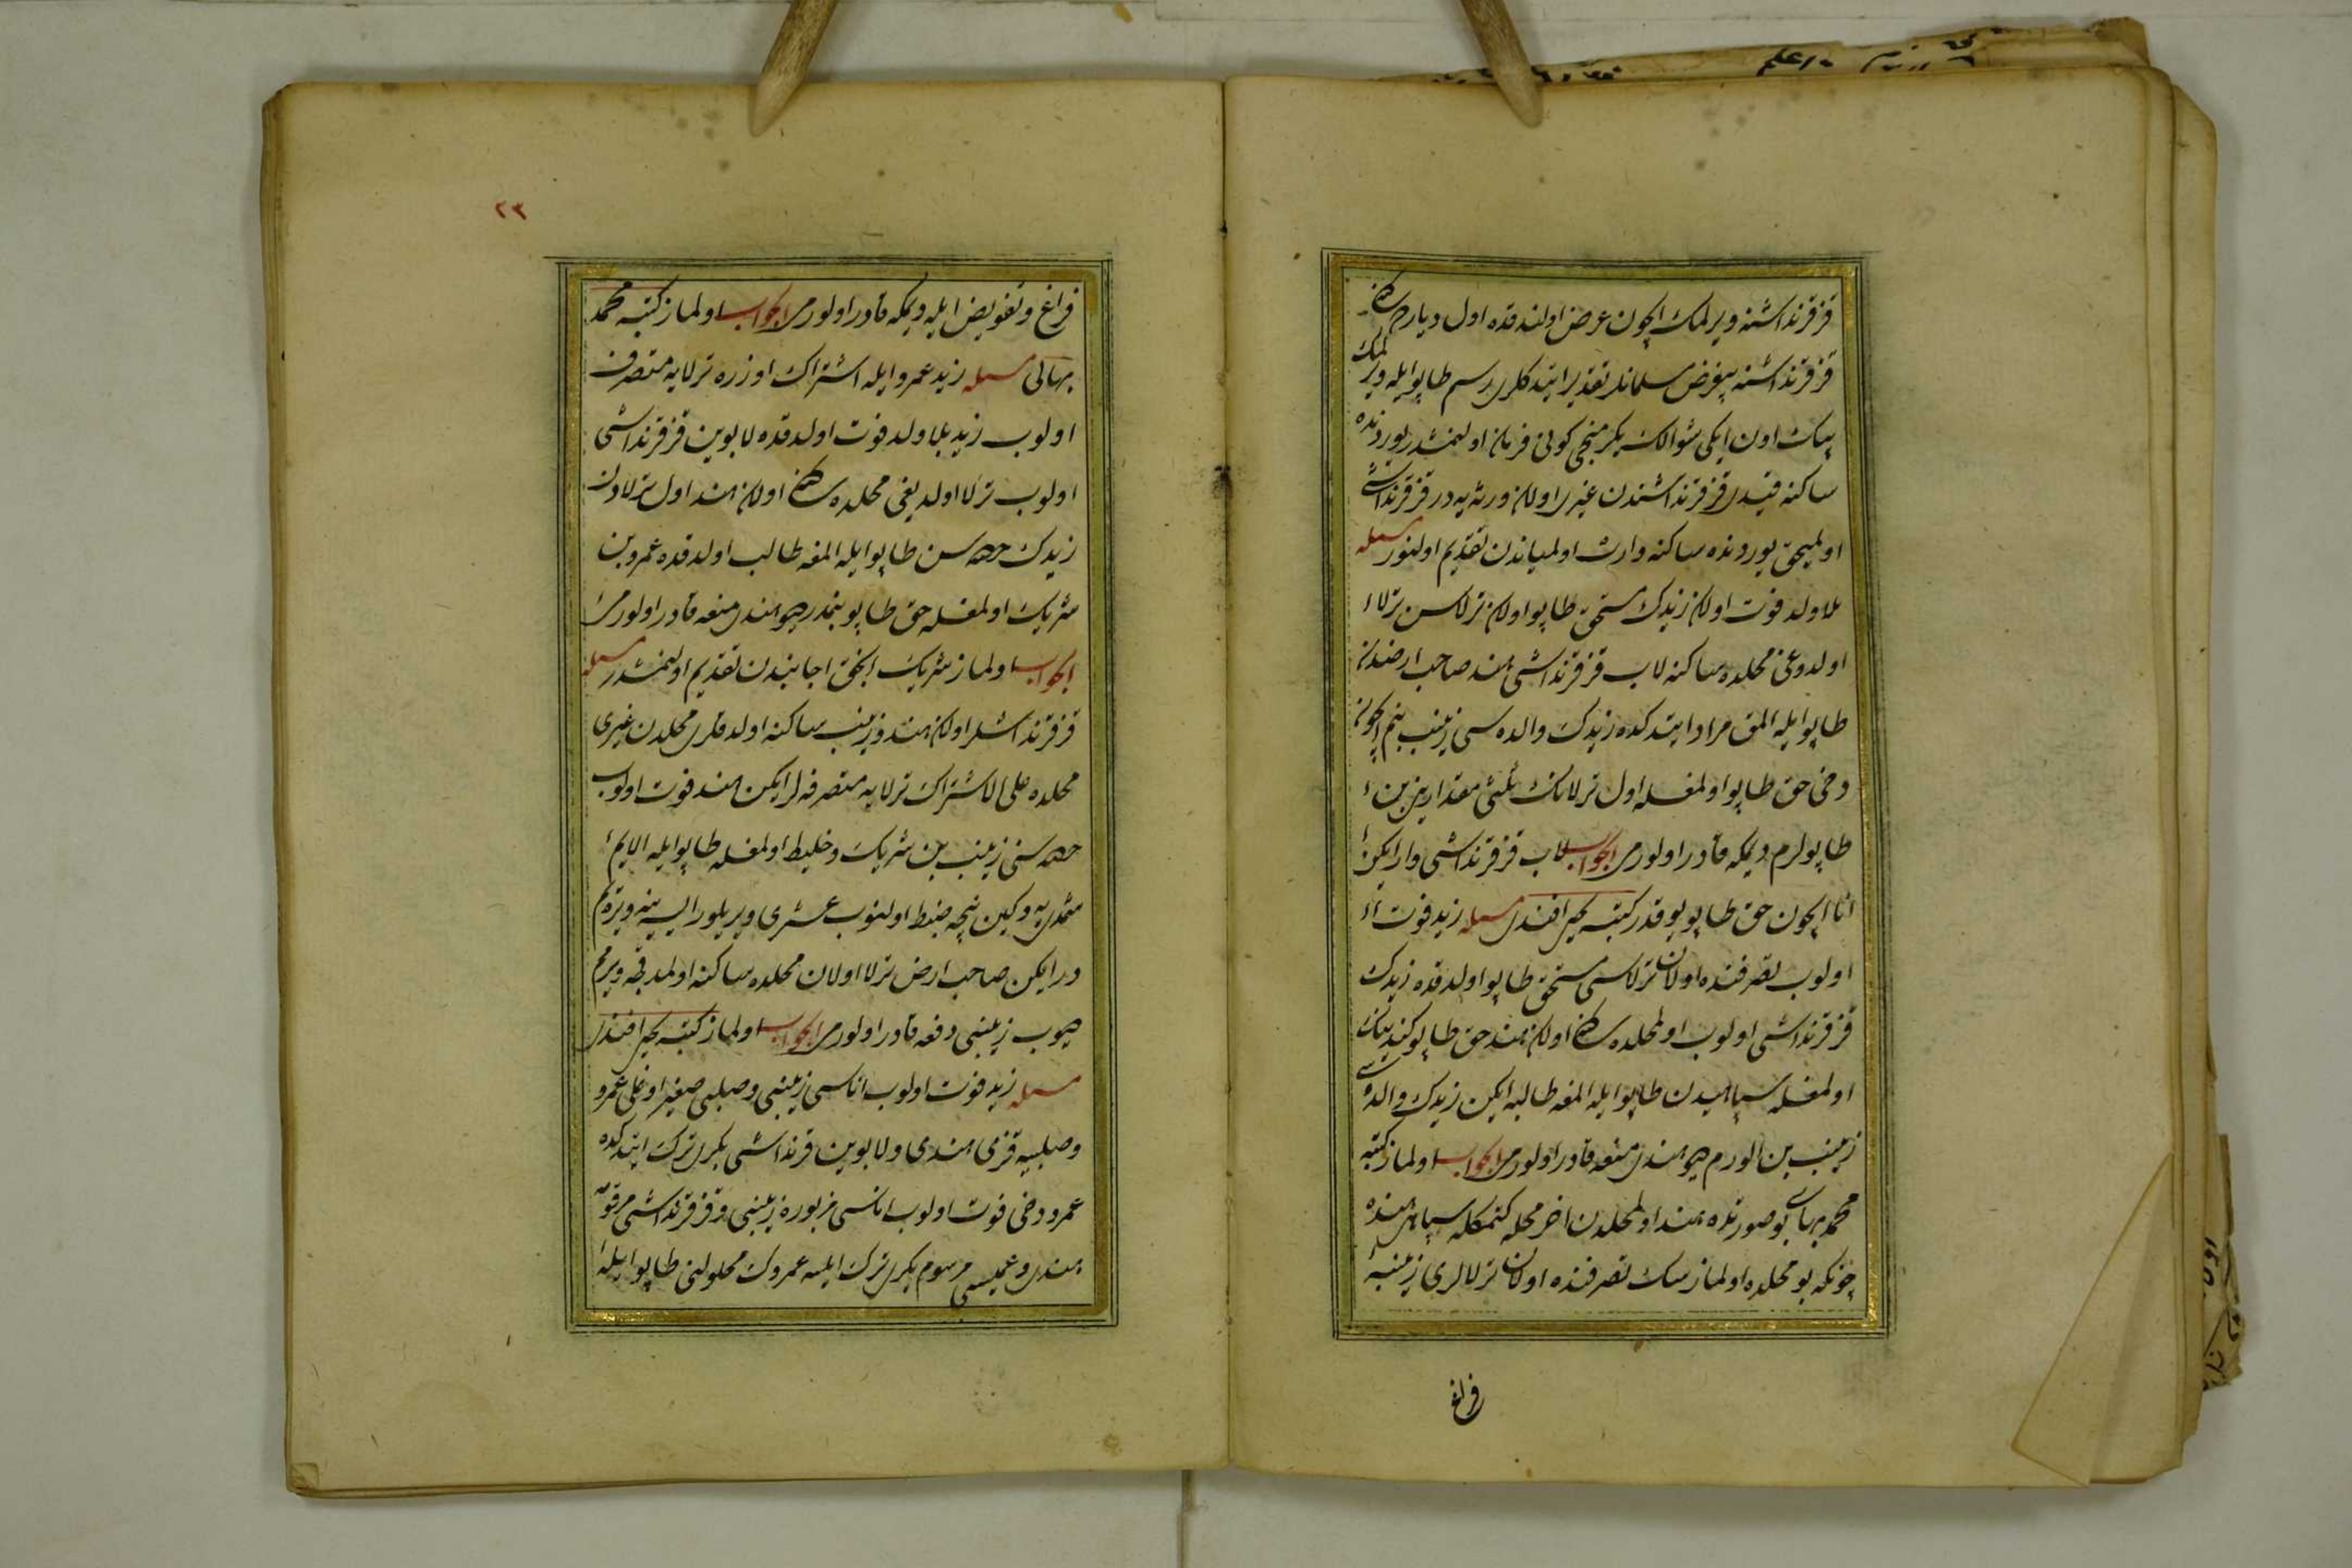 قز قرنداشنه ويرلمك ايچون عرض اولندقده اول ديارده ساكن
قز قرنداشنه بيغرض مسلمانلر تقدير ايتدكلرى رسم طاپو ايله ويرلمك
بيك اون ايكى شوالك يكرمنجى كونى فرمان اولنمشدر يورونده
ساكنه قيدى قز قرنداشندن غيرى اولان ورثه يه در قز قرنداشى
اولميجق يورونده ساكنه وارث اولمياندن تقديم اولنور مسله
بلا ولد فوت اولان زيدك مستحق طاپو اولان ترلاسن ترلا
اولدوغى محلده ساكنه لاب قز قرنداشى هند صاحب ارضدن
طاپو ايله المق مراد ايتدكده زيدك والده سى زينب بنم ايچون
دخى حق طاپو اولمغله اول ترلانك ثلثى مقدارين بن
طاپولرم ديمكه قادر اولورمى الجواب لاب قز قرنداشى وار ايكن
انا ايچون حق طاپو يوقدر كتبه يحيى افندى مسله زيد فوت
اولوب تصرفنده اولان ترلاسى مستحق طاپو اولدقده زيدك
قز قرنداشى اولوب اول محلده ساكن اولان هند حق طاپو كندينك
اولمغله سپاهيدن طاپو ايله المغه طالبه ايكن زيدك والده سى
زينب بن الورم ديو هندى منعه قادر اولورمى الجواب اولماز كتبه
محمد بهائى بو صورتده هند اول محلدن اخر محله كتمكله سپاهى هنده
چونكه بو محلده اولمازسك تصرفنده اولان ترلالرى زينبه
فراغ
٢٣
فراغ وتفويض ايله ديمكه قادر اولورمى الجواب اولماز كتبه محمد
بهائى مسله زيد عمرو ايله اشتراك اوزره ترلايه متصرف
اولوب زيد بلا ولد فوت اولدقده لابوين قز قرنداشى
اولوب ترلا اولديغى محلده ساكن اولان هند اول ترلادن
زيدك حصه سن طاپو ايله المغه طالب اولدقده عمرو بن
شريك اولمغله حق طاپو بنمدر ديو هندى منعه قادر اولورمى
الجواب اولماز شريك انجق اجانبدن تقديم اولنمشدر مسله
قز قرنداشلر اولان هند وزينب ساكنه اولدقلرى محلدن غيرى
محلده على الاشتراك ترلايه متصرفه لر ايكن هند فوت اولوب
حصه سنى زينب بن شريك وخليط اولمغله طاپو ايله الايم
شمدى يه دكين نيجه ضبط اولنوب عشرى ويريلور ايسه ينه ويره يم
در ايكن صاحب ارض ترلا اولان محلده ساكنه اولمدقجه ويرمم
ديوب زينبى دفعه قادر اولورمى الجواب اولماز كتبه يحيى افندى
مسله زيد فوت اولوب اناسى زينبى وصلبى صغير اوغلى عمرو
وصلبيه قزى هندى ولابوين قرنداشى بكرى ترك ايتدكده
عمرو دخى فوت اولوب اناسى مزبوره زينبى وقز قرنداشى مرقومه
هندى وعميسى مرسوم بكرى ترك ايلسه عمروك محلولنى طاپو ايله